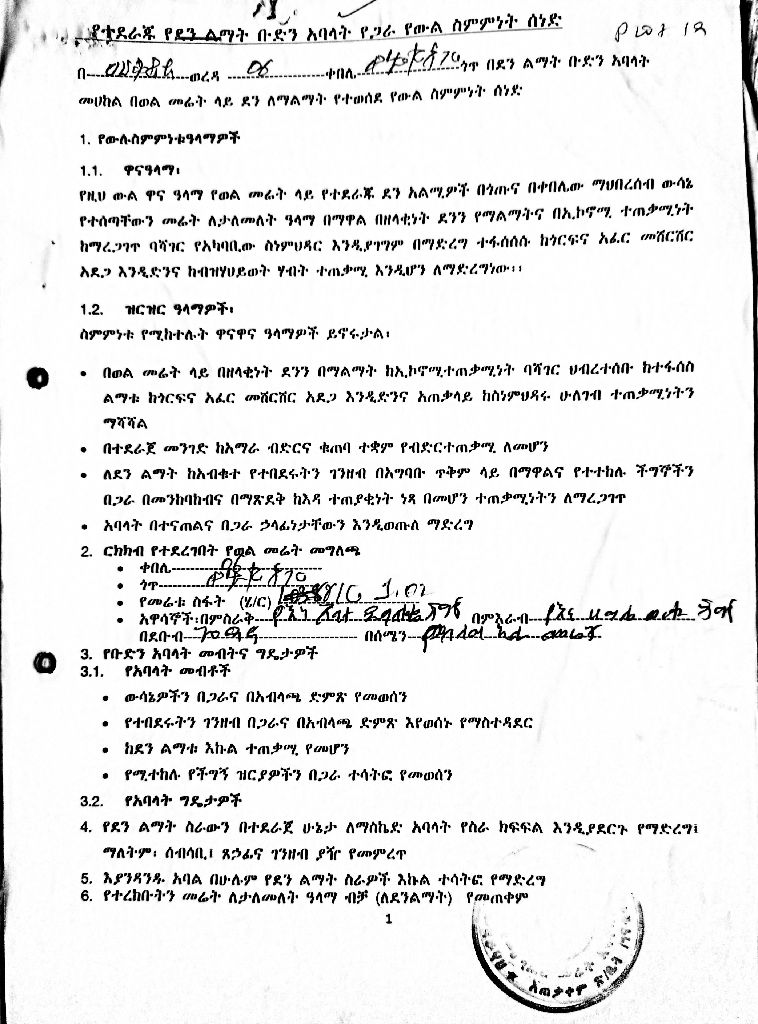 የተደራጁ የደን ልማት ቡድን አባላት የጋራ የውል ስምምነት ሰነድ
Plot 12
በ ወረዳ 06 ቀበሌ ጎጥ በደን ልማት ቡድን አባላት
መሀከል በወል መሬት ላይ ደን ለማልማት የተወሰደ የውል ስምምነት ሰነድ
1. የውሉስምምነቱዓላማዎች
1.1. ዋናዓላማ፡
የዚህ ውል ዋና ዓላማ የወል መሬት ላይ የተደራጁ ደን አልሚዎች በጎጡና በቀበሌው ማህበረሰብ ውሳኔ
የተሰጣቸውን መሬት ለታለመለት ዓላማ በማዋል በዘላቂነት ደንን የማልማትና በኢኮኖሚ ተጠቃሚነት
ከማረጋገጥ ባሻገር የአካባቢው ስነምህዳር እንዲያገግም በማድረግ ተፋሰሰሱ ከጎርፍና አፈር መሸርሸር
አደጋ እንዲድንና ከብዝሃህይወት ሃብት ተጠቃሚ እንዲሆን ለማድረግነው፡፡
1.2. ዝርዝር ዓላማዎች፡
ስምምነቱ የሚከተሉት ዋናዋና ዓላማዎች ይኖሩታል፡
• በወል መሬት ላይ በዘላቂነት ደንን በማልማት ከኢኮኖሚተጠቃሚነት ባሻገር ህብረተሰቡ ከተፋሰስ
ልማቱ ከጎርፍና አፈር መሸርሸር አደጋ እንዲድንና አጠቃላይ ከስነምህዳሩ ሁለገብ ተጠቃሚነትን
ማሻሻል
• በተደራጀ መንገድ ከአማራ ብድርና ቁጠባ ተቋም የብድርተጠቃሚ ለመሆን
• ለደን ልማት ከአብቁተ የተበደሩትን ገንዘብ በአግባቡ ጥቅም ላይ በማዋልና የተተከሉ ችግኞችን
በጋራ በመንከባከብና በማጽደቅ ከእዳ ተጠያቂነት ነጻ በመሆን ተጠቃሚነትን ለማረጋገጥ
• አባላት በተናጠልና በጋራ ኃላፊነታቸውን እንዲወጡለ ማድረግ
2. ርክክብ የተደረገበት የወል መሬት መግለጫ
• ቀበሌ 06
• ጎጥ
• የመሬቱ ስፋት (ሄ/ር)
• አዋሳኞች፡በምስራቅ በምእራብ
በደቡብ በሰሜን
3. የቡድን አባላት መብትና ግዴታዎች
3.1. የአባላት መብቶች
• ውሳኔዎችን በጋራና በአብላጫ ድምጽ የመወሰን
• የተበደሩትን ገንዘብ በጋራና በአብላጫ ድምጽ እየወሰኑ የማስተዳደር
• ከደን ልማቱ እኩል ተጠቃሚ የመሆን
• የሚተከሉ የችግኝ ዝርያዎችን በጋራ ተሳትፎ የመወሰን
3.2. የአባላት ግዴታዎች
4. የደን ልማት ስራውን በተደራጀ ሁኔታ ለማስኬድ አባላት የስራ ክፍፍል እንዲያደርጉ የማድረግ፤
ማለትም፡ ሰብሳቢ፤ ጸኃፊና ገንዘብ ያዥ የመምረጥ
5. እያንዳንዱ አባል በሁሉም የደን ልማት ስራዎች እኩል ተሳትፎ የማድረግ
6. የተረከቡትን መሬት ለታለመለት ዓላማ ብቻ (ለደንልማት) የመጠቀም
1